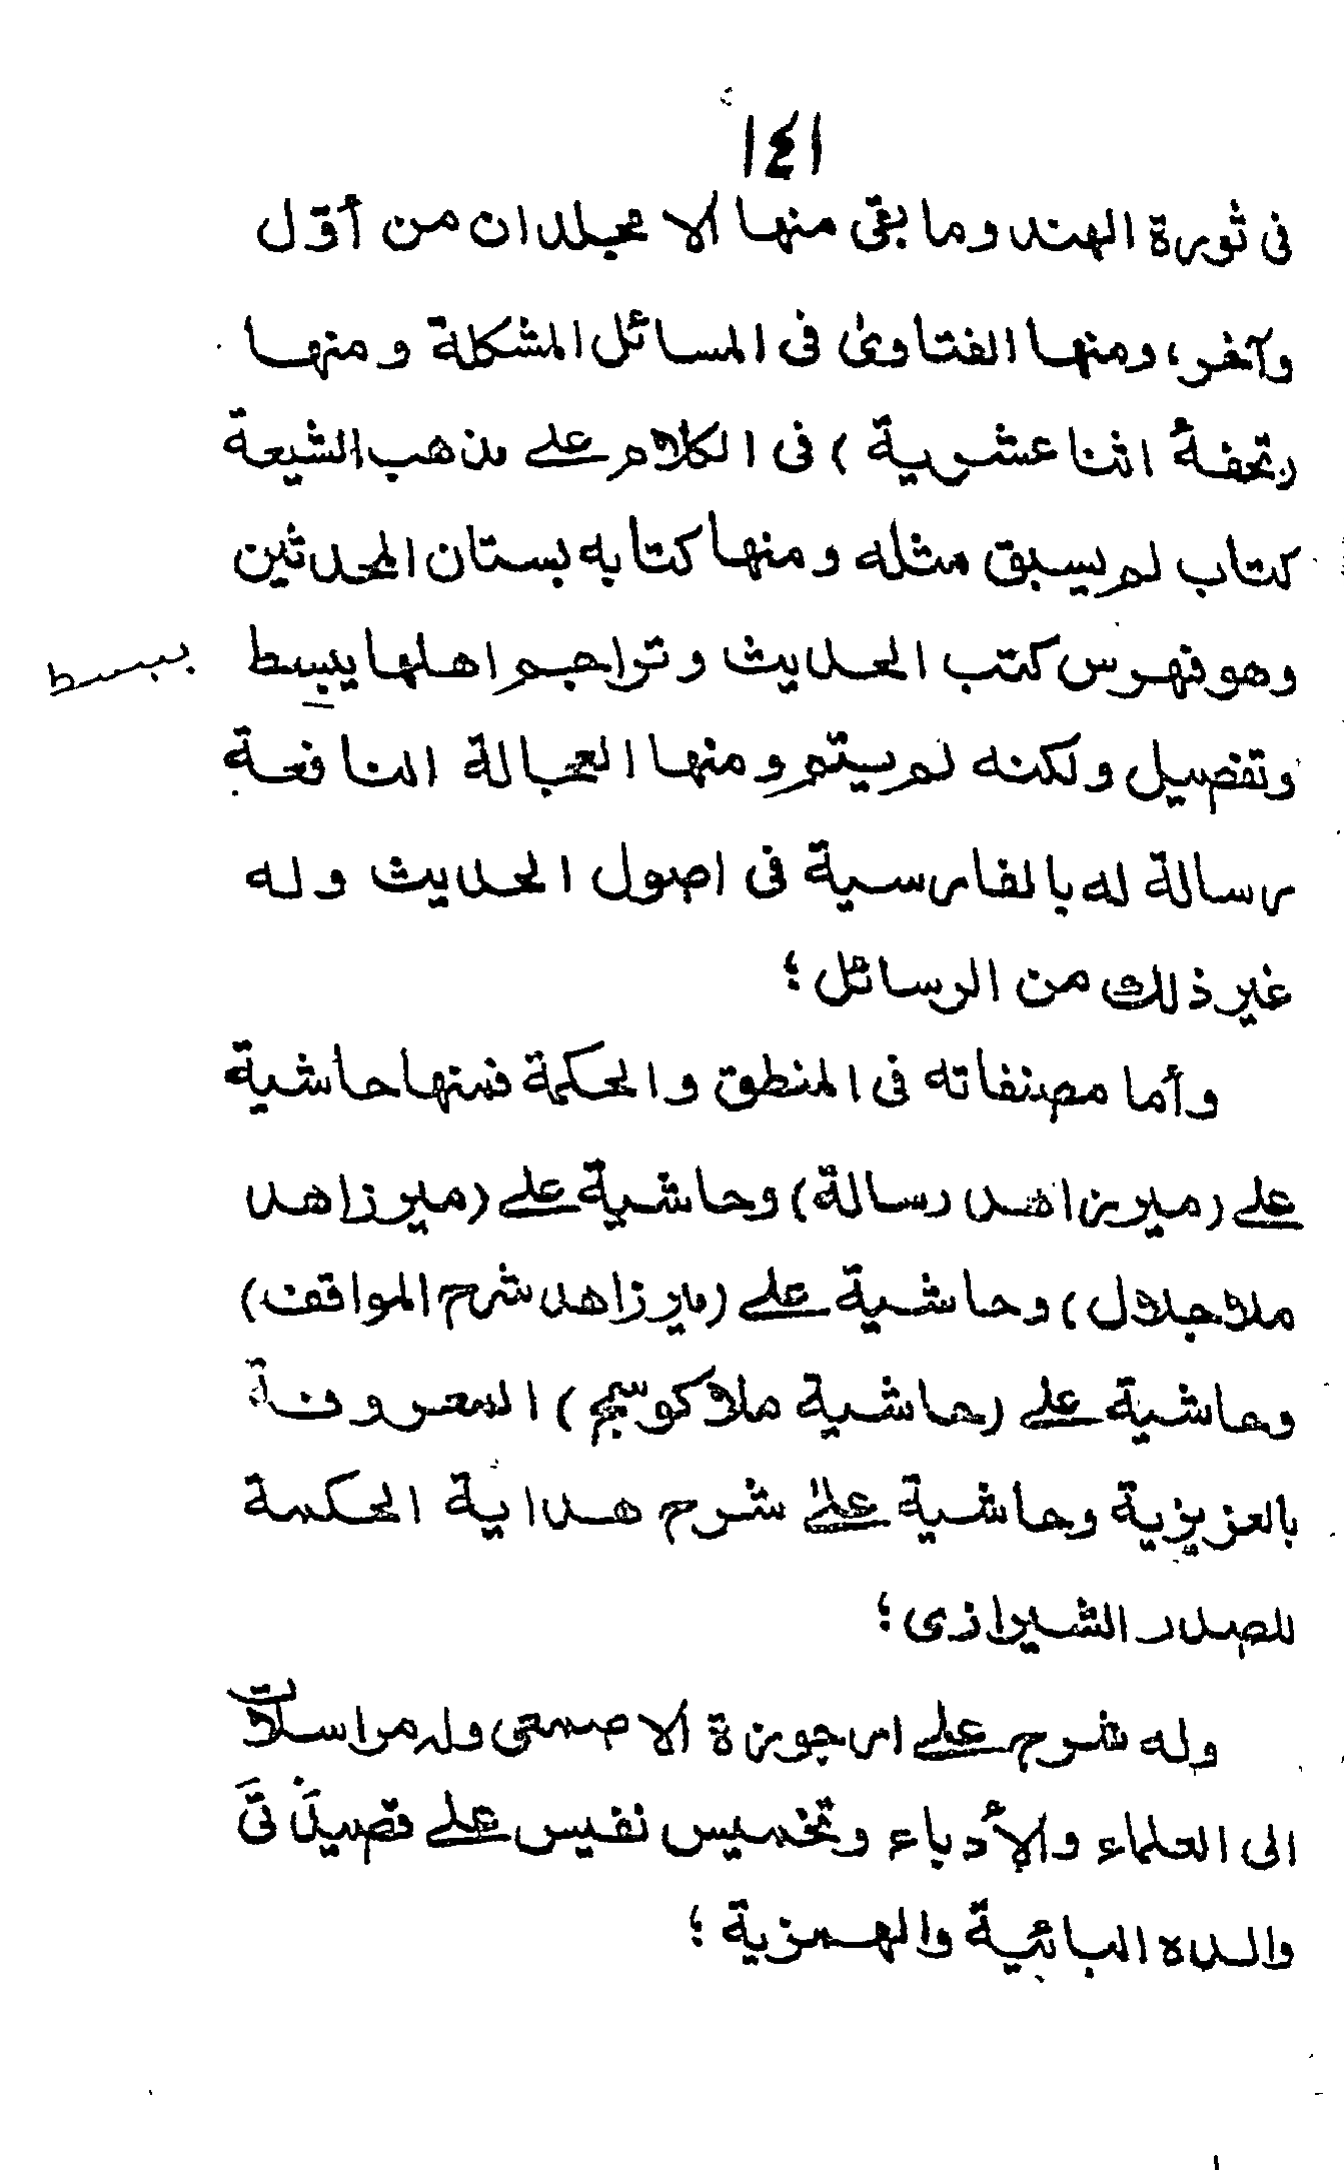 ١٤١
فى ثورة الهند وما بقى منها الا مجلدان من أوّل
وآخر، ومنها الفتاوىٰ فى المسائل المشكلة ومنها
(تحفۂ اثنا عشرية) فى الكلام علے مذهب الشيعة
كتاب لم يسبق مثله ومنها كتابه بستان المحدثين
وهو فهرس كتب الحديث وتراجم اهلها يبسط
ببسط
وتفصيل ولكنه لم يتم ومنها العجالة النافعة
رسالة له بالفارسية فى اصول الحديث وله
غير ذلك من الرسائل؛
وأما مصنفاته فى المنطق والحكمة فمنها حاشية
علے (مير زاهد رسالة) وحاشية علے (مير زاهد
ملا جلال) وحاشية علے (مير زاهد شرح المواقف)
وحاشية علے (حاشية ملا كوسج) المعروفة
بالعزيزية وحاشية علىٰ شرح هداية الحكمة
للصدر الشيرازى؛
وله شرح علے ارجوزة الاصمعى وله مراسلات
الى العلماء والأدباء وتخميس نفيس علے قصيدَتَىْ
والده البائية والهمزية؛